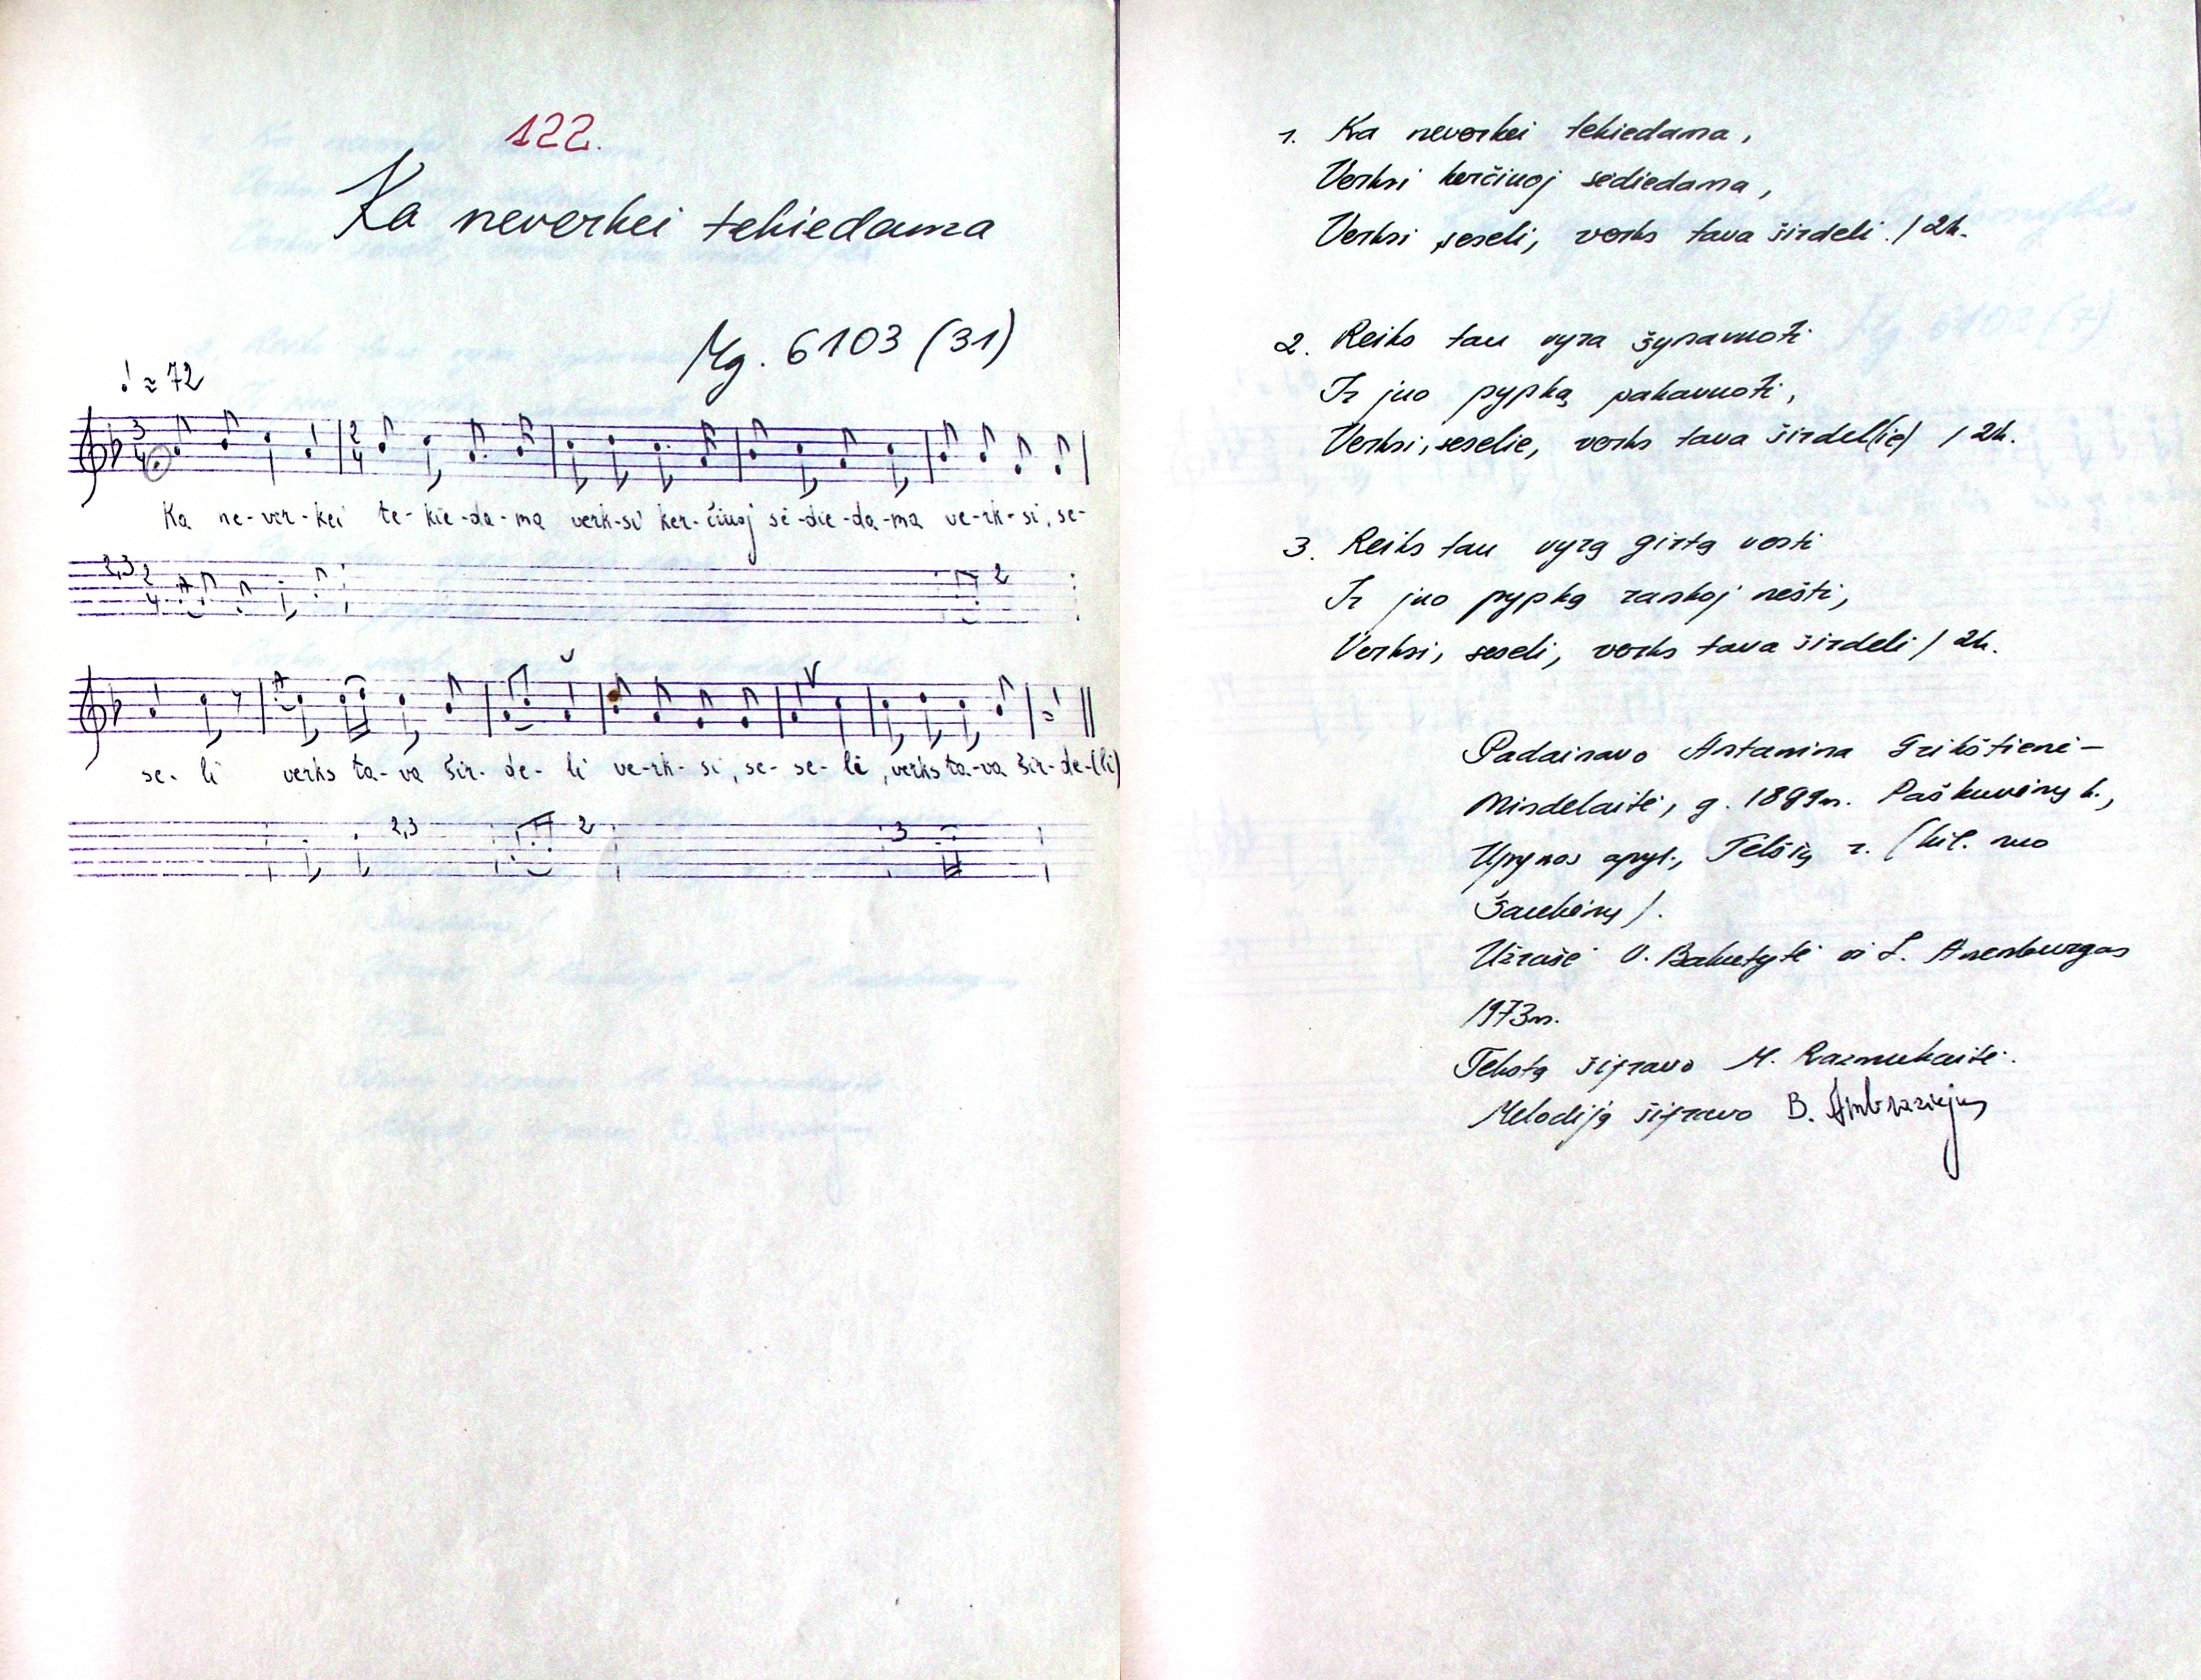 122.
Ka neverkei tekiedama
Mg. 6103 (31)
♩ ≈ 72
Ka ne-ver-kei te-kie-da-ma verk-si ker-čiuoj sė-die-da-ma ve-rk-si, se-
2,3 2
se-li verks ta-va šir-de-li ve-rk-si, se-se-li, verks ta-va šir-de-(li)
2,3 2 3
1. Ka neverkei tekiedama,
Verksi kerčiuoj sėdiedama,
Verksi seseli, verks tava širdeli. / 2k.
2. Reiks tau vyra šynavuoti
Ir juo pypką pakavuoti,
Verksi, seselie, verks tava širdel(ie) / 2k.
3. Reiks tau vyrą girtą vesti
Ir juo pypką rankoj nešti,
Verksi, seseli, verks tava širdeli / 2k.
Padainavo Antanina Grikštienė-
Mindelaitė, g. 1899m. Paškuvėnų k.,
Upynos apyl., Telšių r. (kil. nuo
Šaukėnų).
Užrašė O. Bakutytė ir L. Anenburgas
1973m.
Tekstą šifravo M. Razmukaitė.
Melodiją šifravo B. Ambraziejus